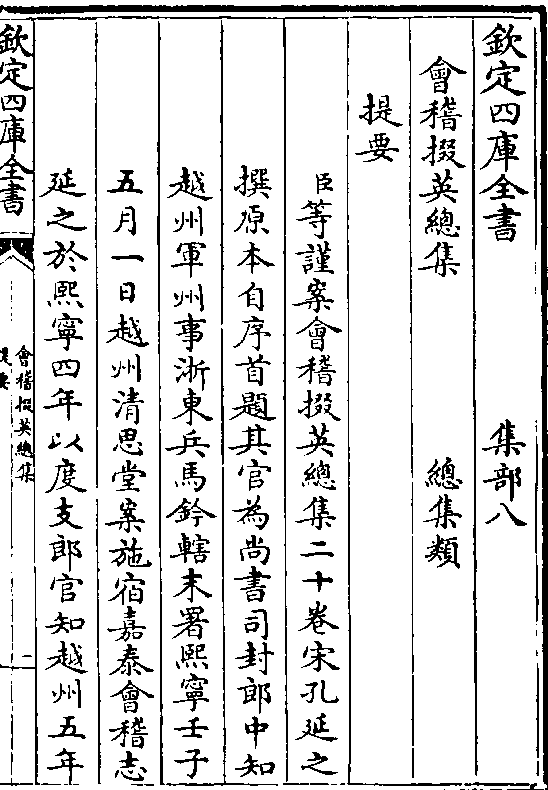 欽定四庫全書 集部八
會稽掇英總集 總集類
提要
臣等謹案會稽掇英總集二十卷宋孔延之
撰原本自序首題其官為尚書司封郎中知
越州軍州事浙東兵馬鈐轄末署熙寧壬子
五月一日越州清思堂案施宿嘉泰會稽志
延之於熙寧四年以度支郎官知越州五年
欽定四庫全書
會稽掇英總集
提要
一